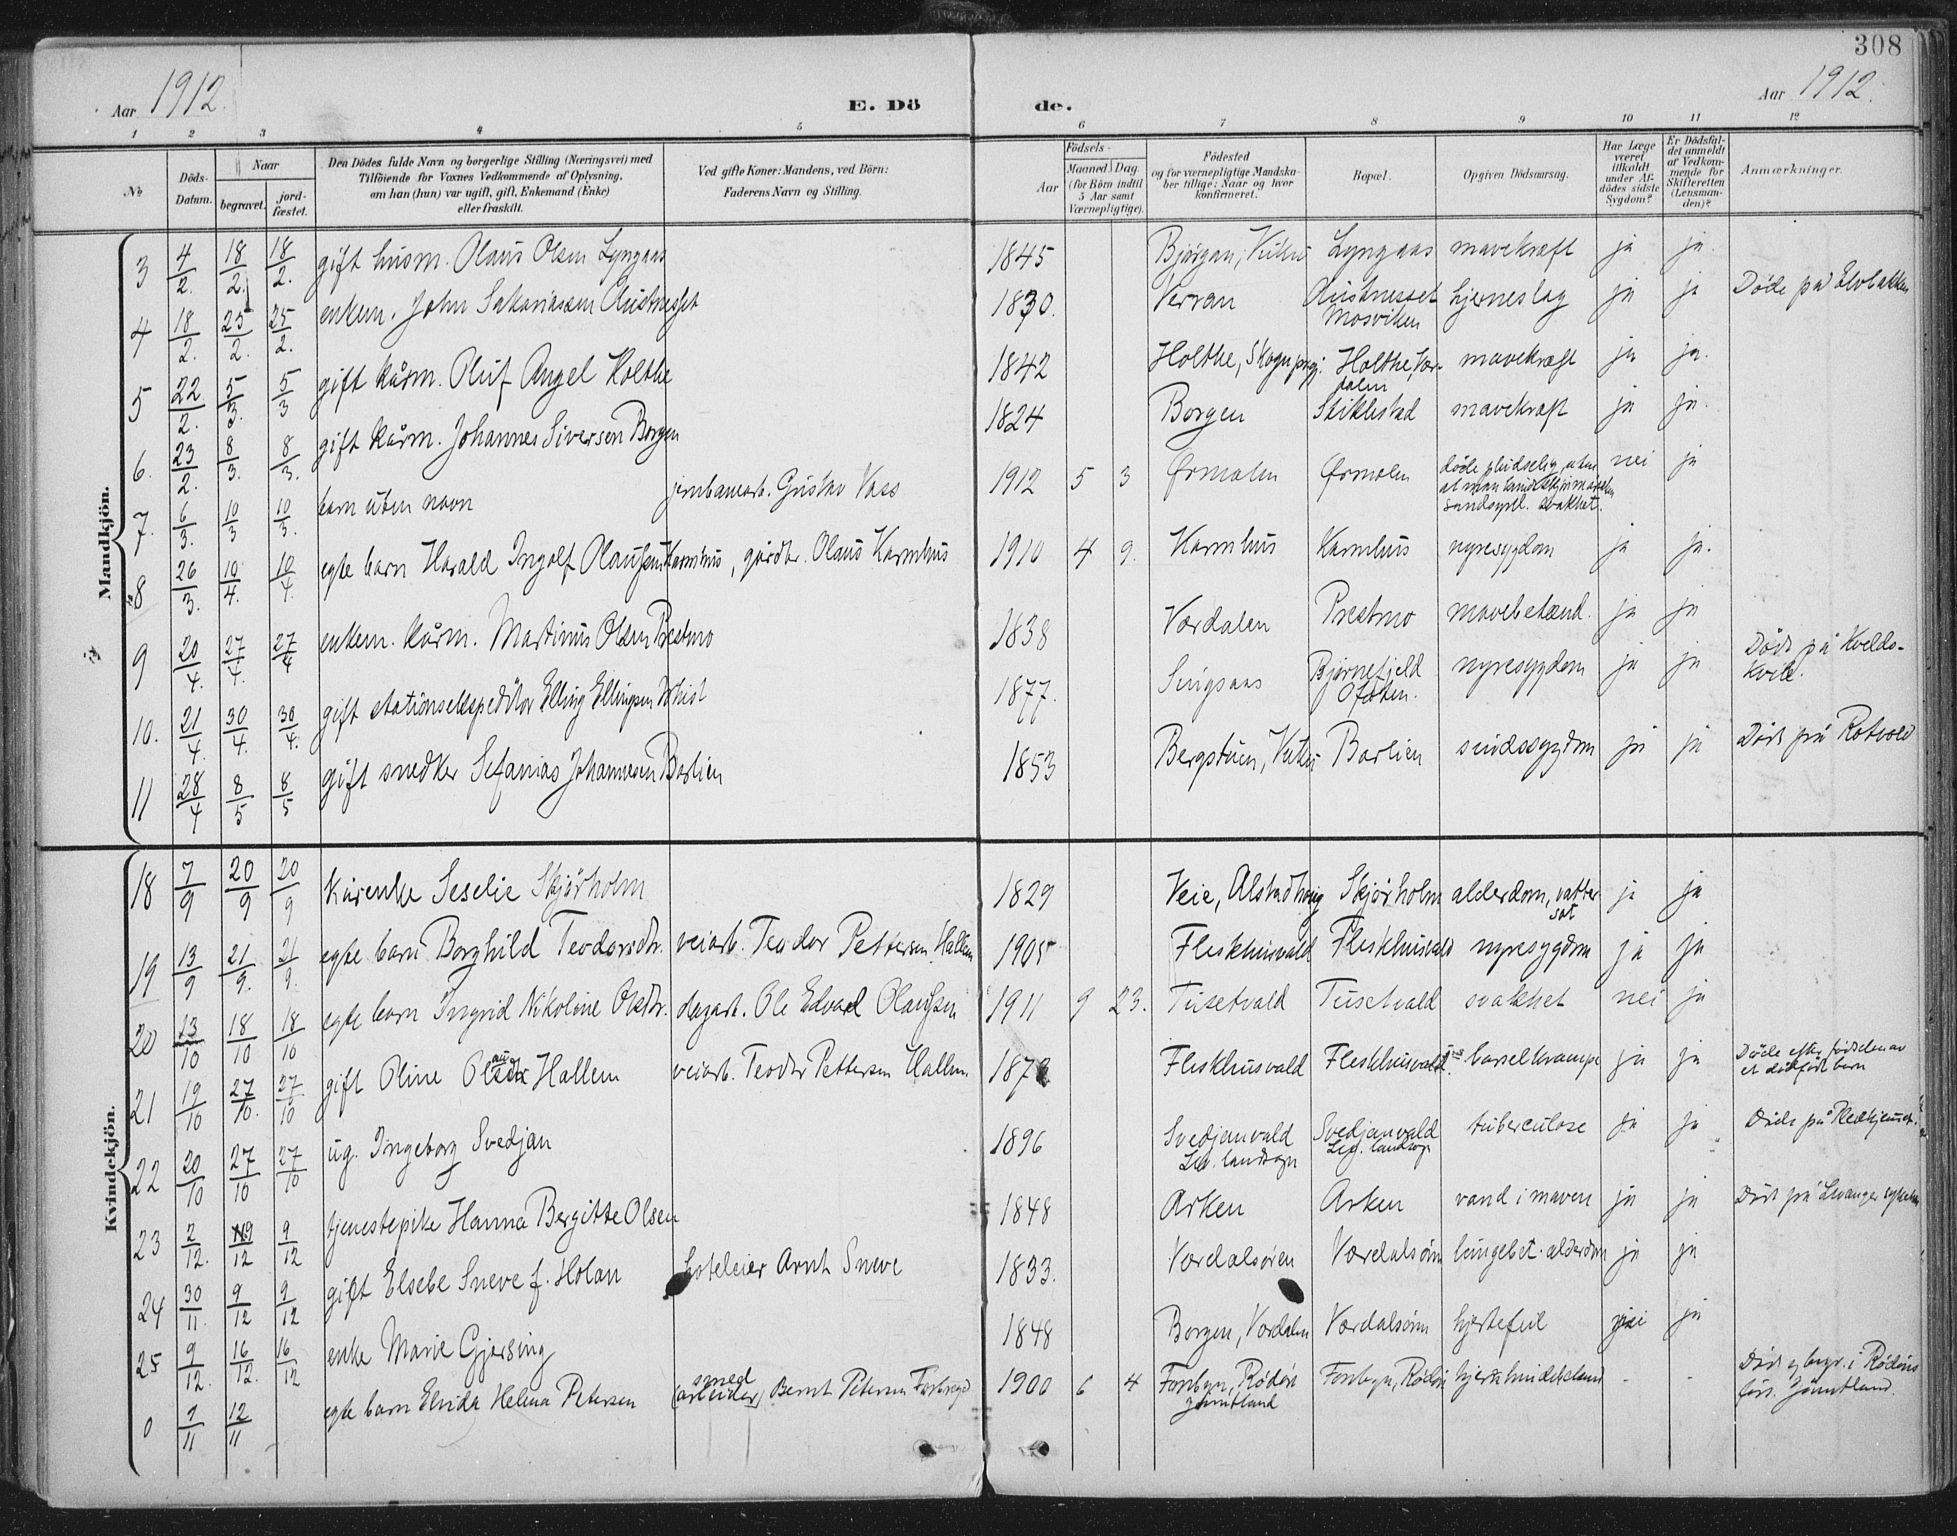 308
Aar 1912.
E. Dö
de.
Aar 1912.
1 2 3 4 5 6 7 8 9 10 11 12
No
Döds-Datum.
Naar
begravet.
jord-fæstet.
Den Dödes fulde Navn og borgerlige Stilling (Næringsvei) med
Tilföiende for Voxnes Vedkommende af Oplysning,
om han (hun) var ugift, gift, Enkemand (Enke)
eller fraskilt.
Ved gifte Koner: Mandens, ved Börn:
Faderens Navn og Stilling.
Födsels-
Aar
Maaned. Dag.
(for Börn indtil
5 Aar samt
Værnepligtige).
Födested
og for værnepligtige Mandska-
ber tillige: Naar og hvor
konfirmeret.
Bopæl.
Opgiven Dödsaarsag.
Har Læge
været
tilkaldt
under Af-
dödes sidste
Sygdom?
Er Dödsfal-
det anmeldt
af Vedkom-
mende for
Skifteretten
(Lensman-
den)?
Anmærkninger.
Mandkjön.
3 4/2. 18/2. 18/2. gift husm. Olaus Olsen Lyngaas 1845 Bjørgan, Lyngaas mavekræft ja ja.
4 18/2. 25/2. 25/2. enkem. John Sakariassen Austnesset 1830. Verran Austnesset Mosviken hjerneslag ja ja Døde på Elvbakken
5 22/2. 5/3. 5/3 gift kårm. Oluf Angel Holthe 1842 Holthe, Skogn prgj. Holthe, Vær-dalen mavekræft ja ja.
6. 23/2. 8/3. 8/3. gift kårm. Johannes Siversen Borgen 1824 Borgen Stiklestad mavekræft ja ja.
7. 6/3. 10/3 10/3. barn uten navn jernbanearb. Gustav Vass 1912 5 3 Ørmelen Ørmelen døde pludselig uten at man sandsynl. svakhet. nei ja
8 26/3. 10/4. 10/4. egte barn Harald Ingolf Olaussen Karmhus, gårdbr. Olaus Karmhus 1910 4 9. Karmhus Karmhus nyresygdom ja ja.
9 20/4. 27/4. 27/4 enkem. kårm. Martinus Olsen Prestmo 1838 Værdalen Prestmo mavebetænd. ja ja
10. 21/4. 30/4. 30/4. gift stationsekspeditør Elling Ellingsen Whist 1877. Singsaas Bjørnefjeld Ofoten. nyresygdom ja ja Døde på Kvelds-kvile.
11 28/4 8/5 8/5 gift snedker Sefanias Johannesen Barlien 1853 Bergstuen, Barlien sindssygdom ja ja Døde på Rotvold
Kvindekjön.
18 7/9 20/9 20/9 Kårenke Seselie Skjørholm 1829 Veie, Alstadhaug Skjørholm alderdom, vatter-sot ja ja
19 13/9 21/9. 21/9. egte barn Borghild Teodorsdtr. veiarb. Teodor Pettersen Hallem 1905 Fleskhusvald Fleskhusvald nyresygdom ja ja
20 13/10 18/10 18/10 egte barn Ingrid Nikoline Olsdtr. dagarb. Ole Edvard Olaussen 1911 9 23. Tusetvald Tusetvald svakhet nei ja
21 19/10 27/10. 27/10 gift Oline Hallem veiarb. Teodor Pettersen Hallem 187 Fleskhusvald Fleskhusvald. barselkrampe ja ja Døde efter fødselen av et dødfødt barn
22 20/10 27/10 27/10 ug. Ingeborg Svedjan 1896 Svedjanvald Lev. landsogn Svedjanvald Lev. landsogn tuberculose ja ja Døde på Pleiehjemmet.
23 2/12. 9/12 9/12 tjenestepike Hanna Bergitte Olsen 1848 Arken Arken vand i maven ja ja Døde på Levanger sykehus
24 30/11. 9/12 9/12 gift Elsebe Sneve f. Holan hoteleier Arnt Sneve 1833. Værdalsøren Værdalsøren lungebet. alderdom ja ja
25 9/12. 16/12. 16/12 enke Marie Gjersing 1848 Borgen, Værdalen Værdalsøren hjertefeil nei ja
0 9/11 12/11 egte barn Elvida Helena Petersen smed (arbeider) Bernt Petersen Færbregd 1900 6 4 Forsbyn, Rødøn Jämtland Forsbyn, Rødøn - - Døde og begr. i Rødøns førs. Jämtland.